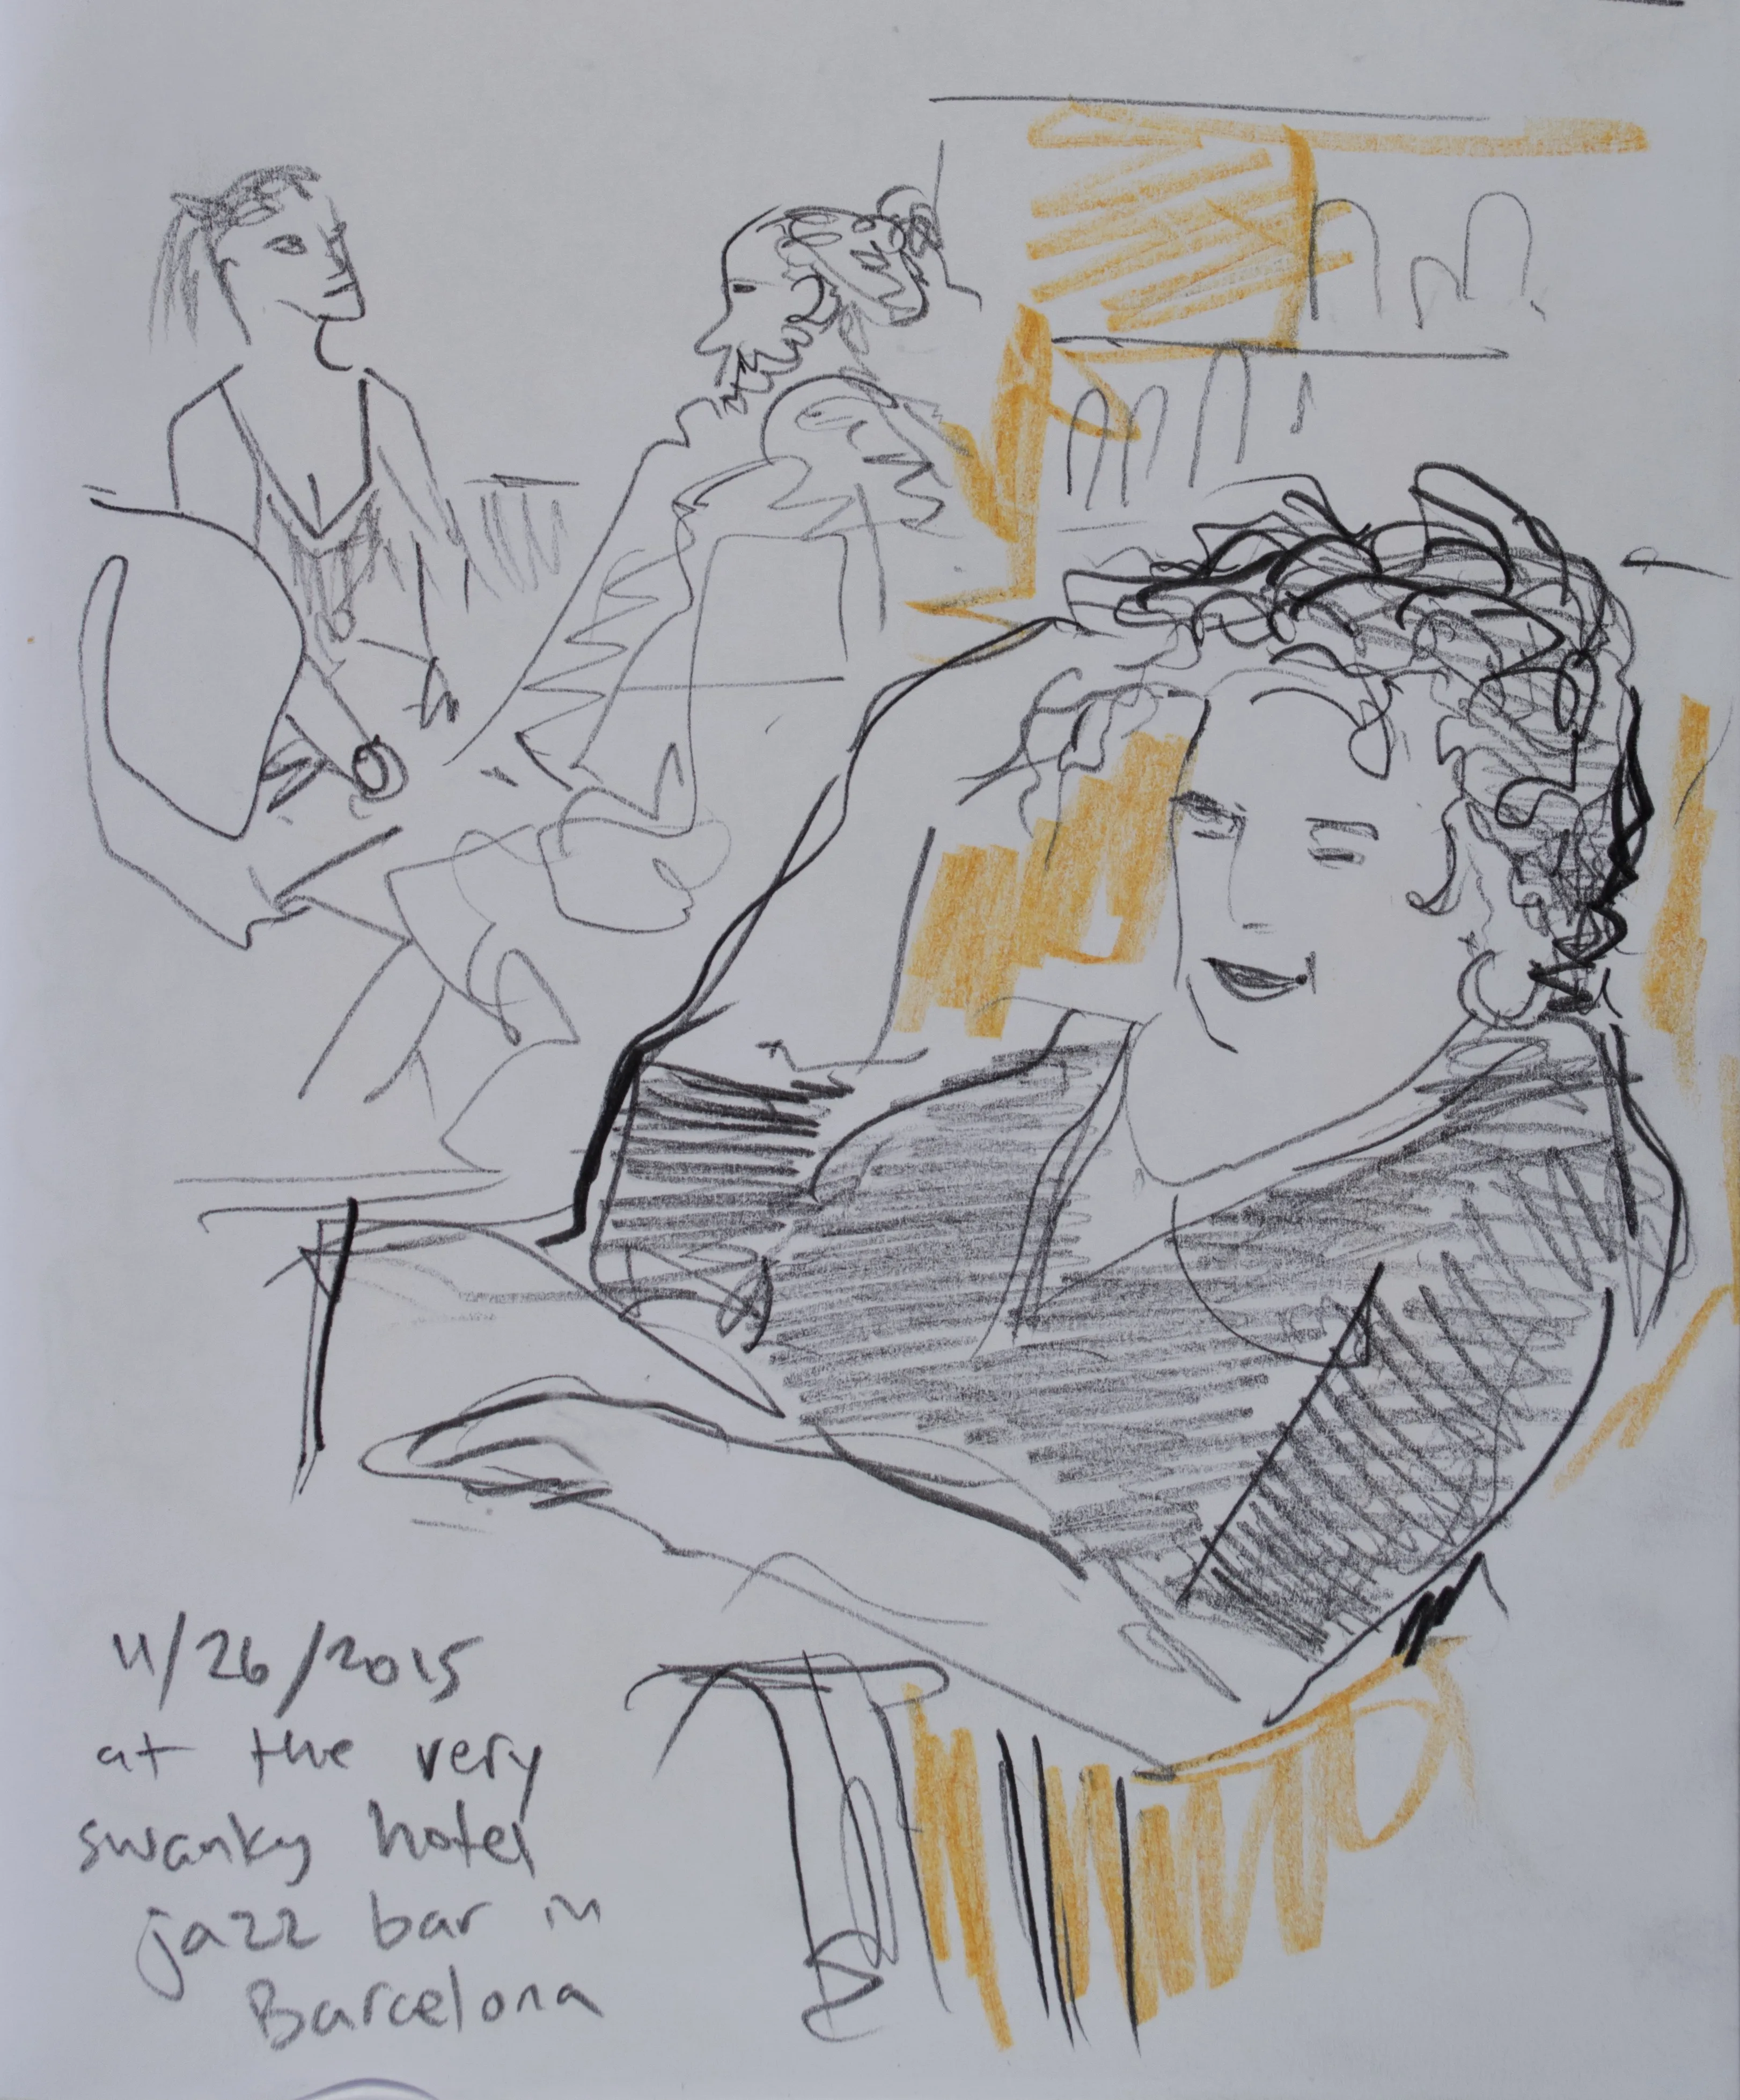 11/26/2015
at the very
swanky hotel
jazz bar in
Barcelona